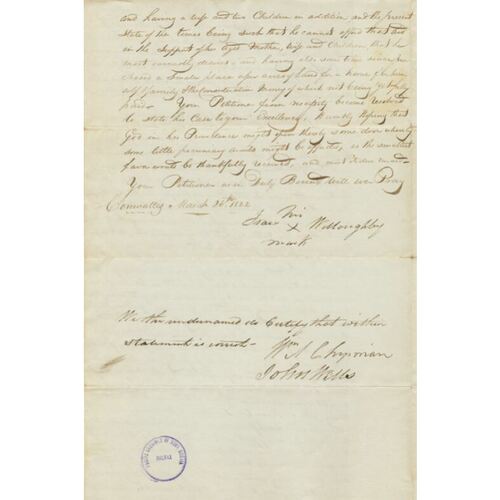 and having a wife and two Children in addition, and the present
State of the times being such that he cannot afford that aid
in the Support of his aged Mother, wife and Children, that he
most earnestly desires, and having also some time since pur
chased a Smaller place upon acres of Land for a home for him
self & family the money of which not being yet fully
paid - Your Petitioner from necessity became
to state his Case to your Excellency, humbly Hoping that
God in his Providence might open thereby some door whereby
some little pecuniary aid might be , as the smallest
favor would be thankfully received, and
Your Petitioner as in Duty Bound will ever Pray
Cornwallis March 26th 1822
his
Isaac X Willoughby
mark
We the undernamed do Certify that within
statement is correct -
Wm A Chipman
John Wells
PUBLIC ARCHIVES OF NOVA SCOTIA
HALIFAX